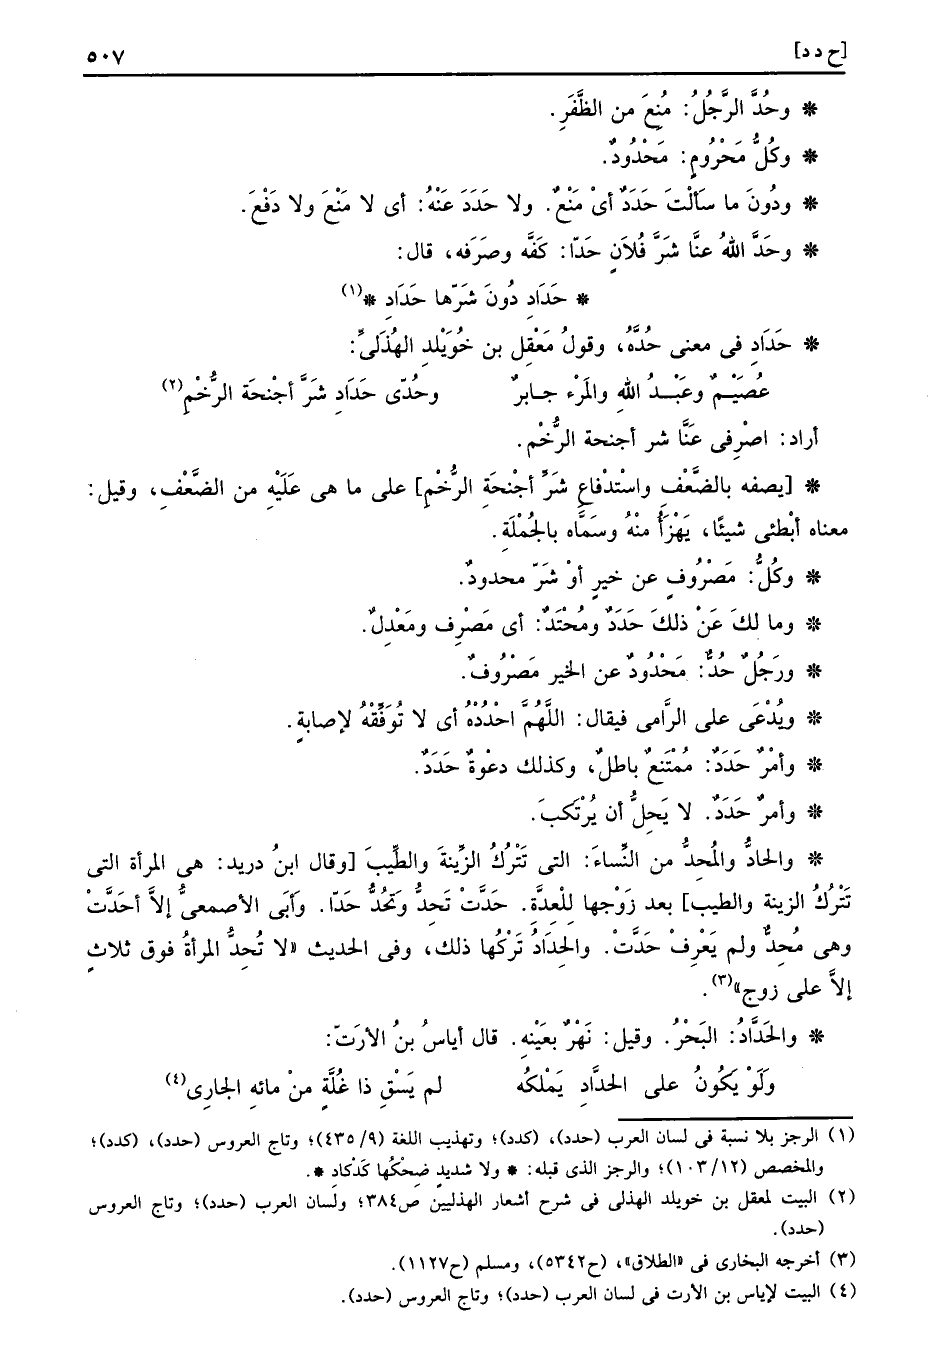 [ح د د] ٥٠٧
* وحُدَّ الرَّجُلُ: مُنِعَ من الظَّفَرِ.
* وكُلُّ مَحْرُومٍ: مَحْدُودٌ.
* ودُونَ ما سَأَلْتَ حَدَدٌ أىْ مَنْعٌ. ولا حَدَدَ عَنْهُ: أى لا مَنْعَ ولا دَفْعَ.
* وحَدَّ اللهُ عنَّا شَرَّ فُلاَنٍ حَدّا: كَفَّه وصَرَفَه، قال:
* حَدَادِ دُونَ شَرّها حَدَادِ *(١)
* حَدَادِ فى معنى حُدَّهُ، وقولُ مَعْقِلِ بن خُوَيْلدٍ الهُذَلىِّ:
عُصَيْـمٌ وعَبْـدُ اللهِ والمَرْء جـابرٌ وحُدّى حَدَادِ شَرَّ أجْنحَة الرُّخْمِ(٢)
أراد: اصْرِفى عَنَّا شر أجنحة الرُّخْم.
* [يصفه بالضَّعْفِ واسْتْدفاعِ شَرِّ أجنْحَةِ الرُّخْمِ] على ما هى عَلَيْهِ من الضَّعْفِ، وقيل:
معناه أبْطئى شيئًا، يَهْزَأُ منْهُ وسَمَّاه بالجُمْلَةِ.
* وكُلُّ: مَصْرُوفٍ عن خيرٍ أوْ شَرّ محدودٌ.
* وما لكَ عَنْ ذلكَ حَدَدٌ ومُحْتَدٌ: أى مَصْرِف ومَعْدِلٌ.
* ورَجُلٌ حُدٌّ: مَحْدُودٌ عن الخير مَصْرُوفٌ.
* ويُدْعَى على الرَّامى فيقال: اللَّهُمَّ احْدُدْهُ أى لا تُوَفِّقْهُ لإصابةٍ.
* وأمْرٌ حَدَدٌ: مُمْتَنعٌ باطلٌ، وكذلك دعْوةٌ حَدَدٌ.
* وأمرٌ حَدَدٌ. لا يَحلُّ أن يُرْتَكبَ.
* والحادُّ والمُحدُّ من النِّساءَ: التى تَتْرُكُ الزِّينةَ والطِّيبَ [وقال ابنُ دريد: هى المرأة التى
تَتْرُكُ الزينة والطيب] بعد زَوْجها لِلْعدَّة. حَدَّتْ تَحدُّ وَتَحُدُّ حَدّا. وأبَى الأصمعىُّ إلاَّ أحَدَّتْ
وهى مُحِدٌّ ولم يَعْرِفْ حَدَّتْ. والحِدَادُ تَرْكُها ذلك، وفى الحديث «لا تُحدُّ المرأةُ فوق ثلاثٍ
إلاَّ على زوج»(٣).
* والحَدَّادُ: البَحْرُ. وقيل: نَهْرٌ بعَيْنه. قال أياسُ بنُ الأرَتّ:
ولَوْ يَكُونُ على الحدَّادِ يَمْلكُه لم يَسْقِ ذا غُلَّةٍ منْ مائه الجارِى(٤)
(١) الرجز بلا نسبة فى لسان العرب (حدد)، (كدد)؛ وتهذيب اللغة (٩/ ٤٣٥)؛ وتاج العروس (حدد)، (كدد)؛
والمخصص (١٢/ ١٠٣)؛ والرجز الذى قبله: * ولا شديدٍ ضحْكُها كَدْكاد *.
(٢) البيت لمعقل بن خويلد الهذلى فى شرح أشعار الهذليين ص٣٨٤؛ ولسان العرب (حدد)؛ وتاج العروس
(حدد).
(٣) أخرجه البخارى فى «الطلاق»، (ح٥٣٤٢)، ومسلم (ح١١٢٧).
(٤) البيت لإياس بن الأرت فى لسان العرب (حدد)؛ وتاج العروس (حدد).